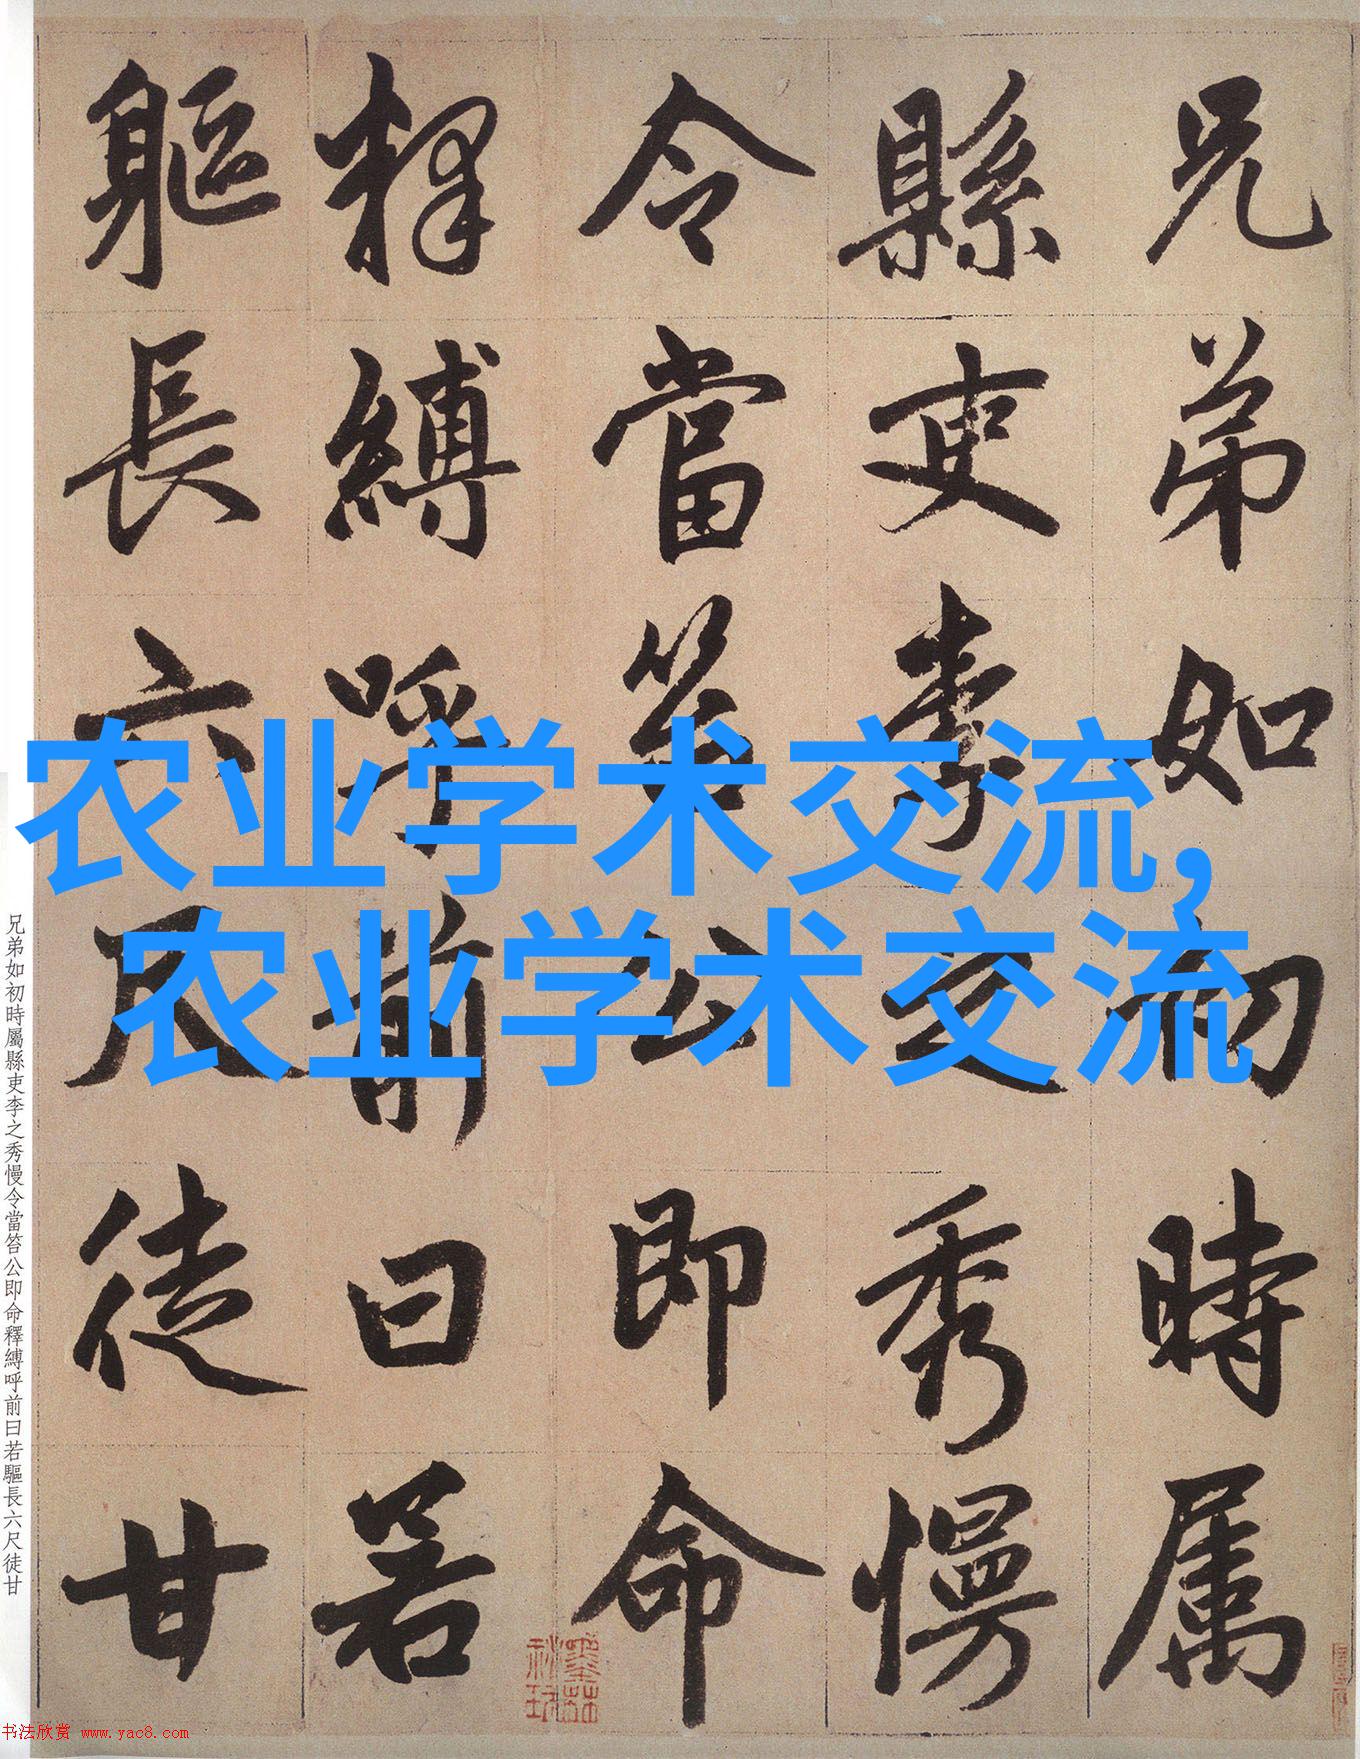 兄弟如初時属
縣吏李之秀慢
令當笞公即命
釋縛呼前曰若
軀長六尺徒甘
农业学术交流,
农业学术交流
兄弟如初時屬縣吏李之秀慢令當笞公即命釋縛呼前曰若驅長六尺徒甘
书法欣赏 www.yac8.com